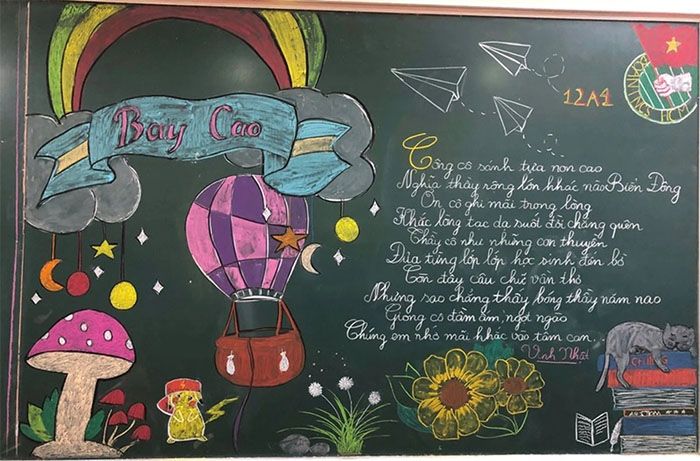 Bay Cao
12A1
ĐOÀN TNCS HCM
Công cô sánh tựa non cao
Nghĩa thầy rộng lớn khác nào Biển Đông
Ơn cô ghi mãi trong lòng
Khắc lòng tạc dạ suốt đời chẳng quên
Thầy cô như những con thuyền
Đưa từng lớp lớp học sinh đến bờ
Còn đây câu chữ vần thơ
Nhưng sao chẳng thấy bóng thầy năm nao
Giọng cô đầm ấm, ngọt ngào
Chúng em nhớ mãi khắc vào tâm can.
Vinh Nhật